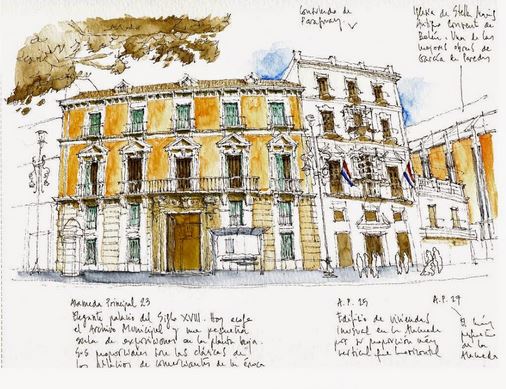 Consulado de
Paraguay.
Iglesia de Stella Maris
Antiguo Convento de
Belén. Una de las
mejores obras de
García de Paredes
Alameda Principal 23
Elegante palacio del Siglo XVIII. Hoy acoge
el Archivo Municipal y una pequeña
sala de exposiciones en la planta baja.
Sus proporciones son las clásicas de
los de comerciantes de la época
A.P. 25
Edificio de viviendas
inusual en la Alameda
por su proporción más
vertical que horizontal
A.P. 29
El más
de la
Alameda